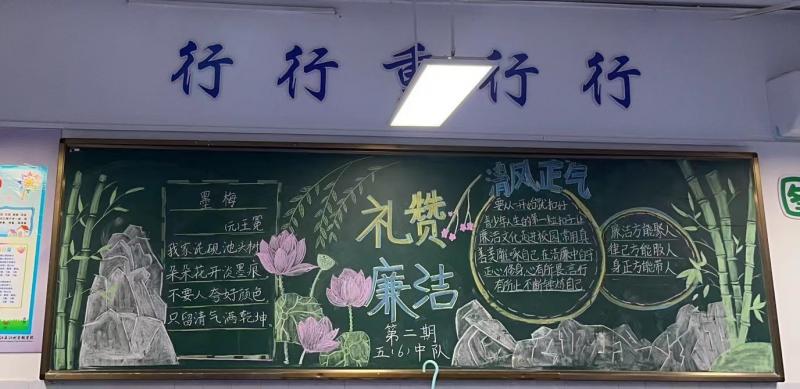 行行重行行
墨梅
元王冕
我家洗砚池头树
朵朵花开淡墨痕
不要人夸好颜色
只留清气满乾坤
礼赞
廉洁
第二期
五(6)中队
清风正气
要从一开始就扣好
青少年人生的第一粒扣子让
廉洁文化走进校园常用真
善美雕琢自己在清廉中自守
正心修身心有所畏言行
有所止不断锤炼自己
廉洁方能聚人
律己方能服人
身正方能带人